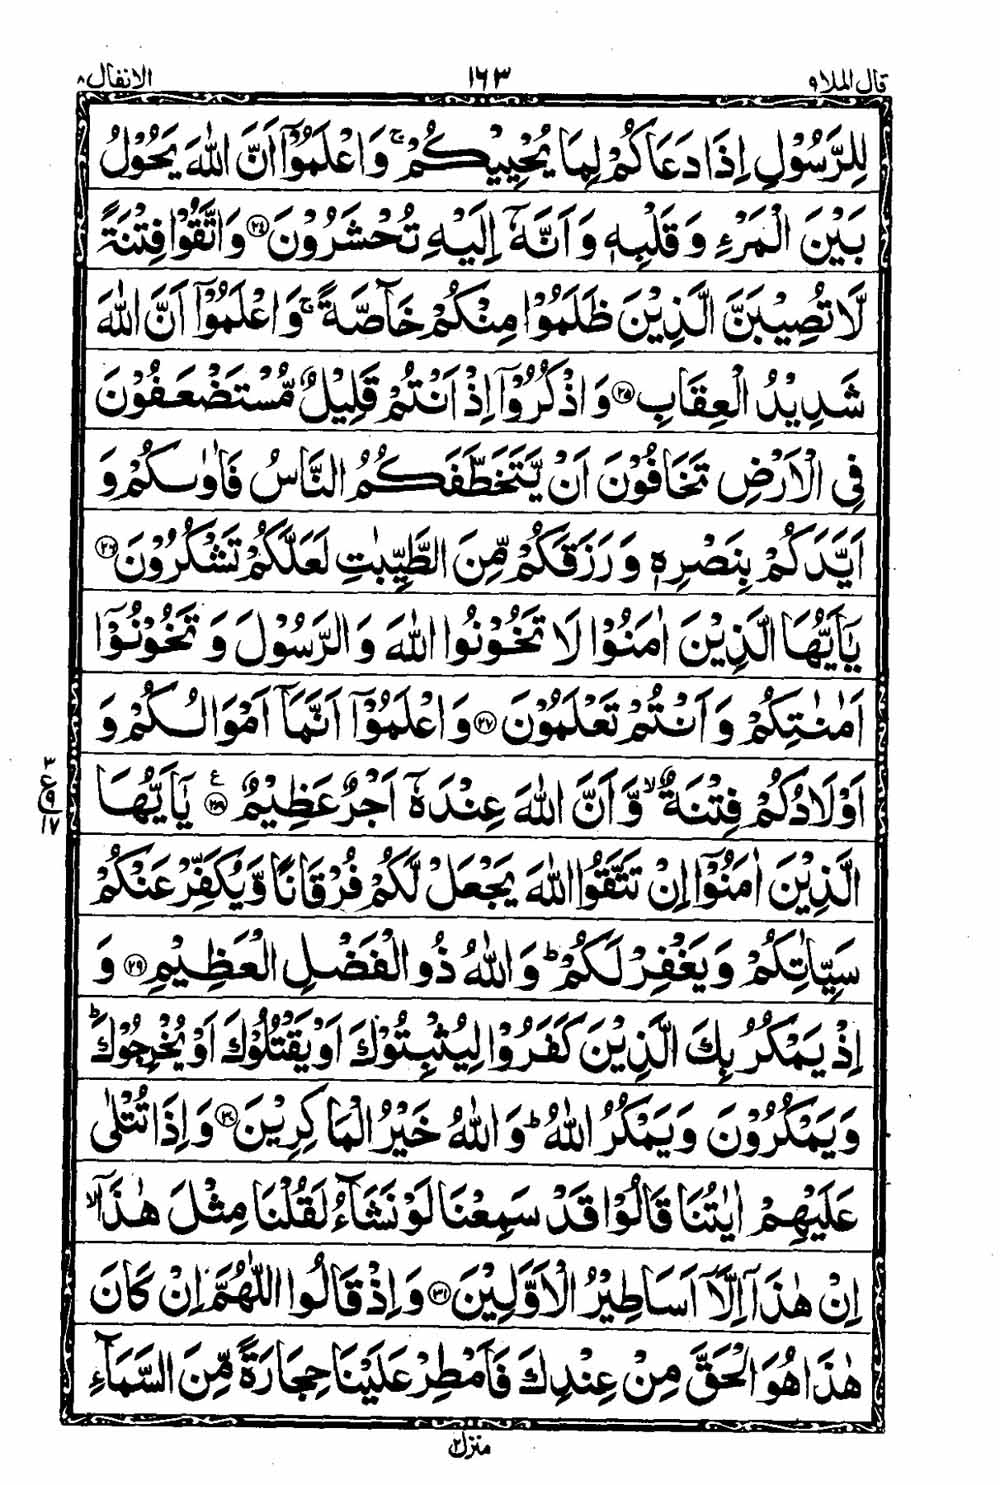 قال الملا ٩
١٦٣
الانفال ٨
لِلرَّسُوْلِ اِذَا دَعَاكُمْ لِمَا يُحْيِيْكُمْ ۚ وَاعْلَمُوْۤا اَنَّ اللّٰهَ يَحُوْلُ
بَيْنَ الْمَرْءِ وَ قَلْبِهٖ وَ اَنَّهٗۤ اِلَيْهِ تُحْشَرُوْنَ ﴿۲۴﴾ وَ اتَّقُوْا فِتْنَةً
لَّا تُصِيْبَنَّ الَّذِيْنَ ظَلَمُوْا مِنْكُمْ خَآصَّةً ۚ وَ اعْلَمُوْۤا اَنَّ اللّٰهَ
شَدِيْدُ الْعِقَابِ ﴿۲۵﴾ وَ اذْكُرُوْۤا اِذْ اَنْتُمْ قَلِيْلٌ مُّسْتَضْعَفُوْنَ
فِي الْاَرْضِ تَخَافُوْنَ اَنْ يَّتَخَطَّفَكُمُ النَّاسُ فَاٰوٰىكُمْ وَ
اَيَّدَكُمْ بِنَصْرِهٖ وَ رَزَقَكُمْ مِّنَ الطَّيِّبٰتِ لَعَلَّكُمْ تَشْكُرُوْنَ ﴿۲۶﴾
يٰۤاَيُّهَا الَّذِيْنَ اٰمَنُوْا لَا تَخُوْنُوا اللّٰهَ وَ الرَّسُوْلَ وَ تَخُوْنُوْۤا
اَمٰنٰتِكُمْ وَ اَنْتُمْ تَعْلَمُوْنَ ﴿۲۷﴾ وَ اعْلَمُوْۤا اَنَّمَاۤ اَمْوَالُكُمْ وَ
اَوْلَادُكُمْ فِتْنَةٌ ۙ وَّ اَنَّ اللّٰهَ عِنْدَهٗۤ اَجْرٌ عَظِيْمٌ ﴿۲۸﴾ ع يٰۤاَيُّهَا
٣
ع
٩
١٧
الَّذِيْنَ اٰمَنُوْۤا اِنْ تَتَّقُوا اللّٰهَ يَجْعَلْ لَّكُمْ فُرْقَانًا وَّ يُكَفِّرْ عَنْكُمْ
سَيِّاٰتِكُمْ وَ يَغْفِرْ لَكُمْ ؕ وَ اللّٰهُ ذُو الْفَضْلِ الْعَظِيْمِ ﴿۲۹﴾ وَ
اِذْ يَمْكُرُ بِكَ الَّذِيْنَ كَفَرُوْا لِيُثْبِتُوْكَ اَوْ يَقْتُلُوْكَ اَوْ يُخْرِجُوْكَ ؕ
وَ يَمْكُرُوْنَ وَ يَمْكُرُ اللّٰهُ ؕ وَ اللّٰهُ خَيْرُ الْمَاكِرِيْنَ ﴿۳۰﴾ وَ اِذَا تُتْلٰى
عَلَيْهِمْ اٰيٰتُنَا قَالُوْا قَدْ سَمِعْنَا لَوْ نَشَآءُ لَقُلْنَا مِثْلَ هٰذَاۤ ۙ
اِنْ هٰذَاۤ اِلَّاۤ اَسَاطِيْرُ الْاَوَّلِيْنَ ﴿۳۱﴾ وَ اِذْ قَالُوا اللّٰهُمَّ اِنْ كَانَ
هٰذَا هُوَ الْحَقَّ مِنْ عِنْدِكَ فَاَمْطِرْ عَلَيْنَا حِجَارَةً مِّنَ السَّمَآءِ
منزل ٢